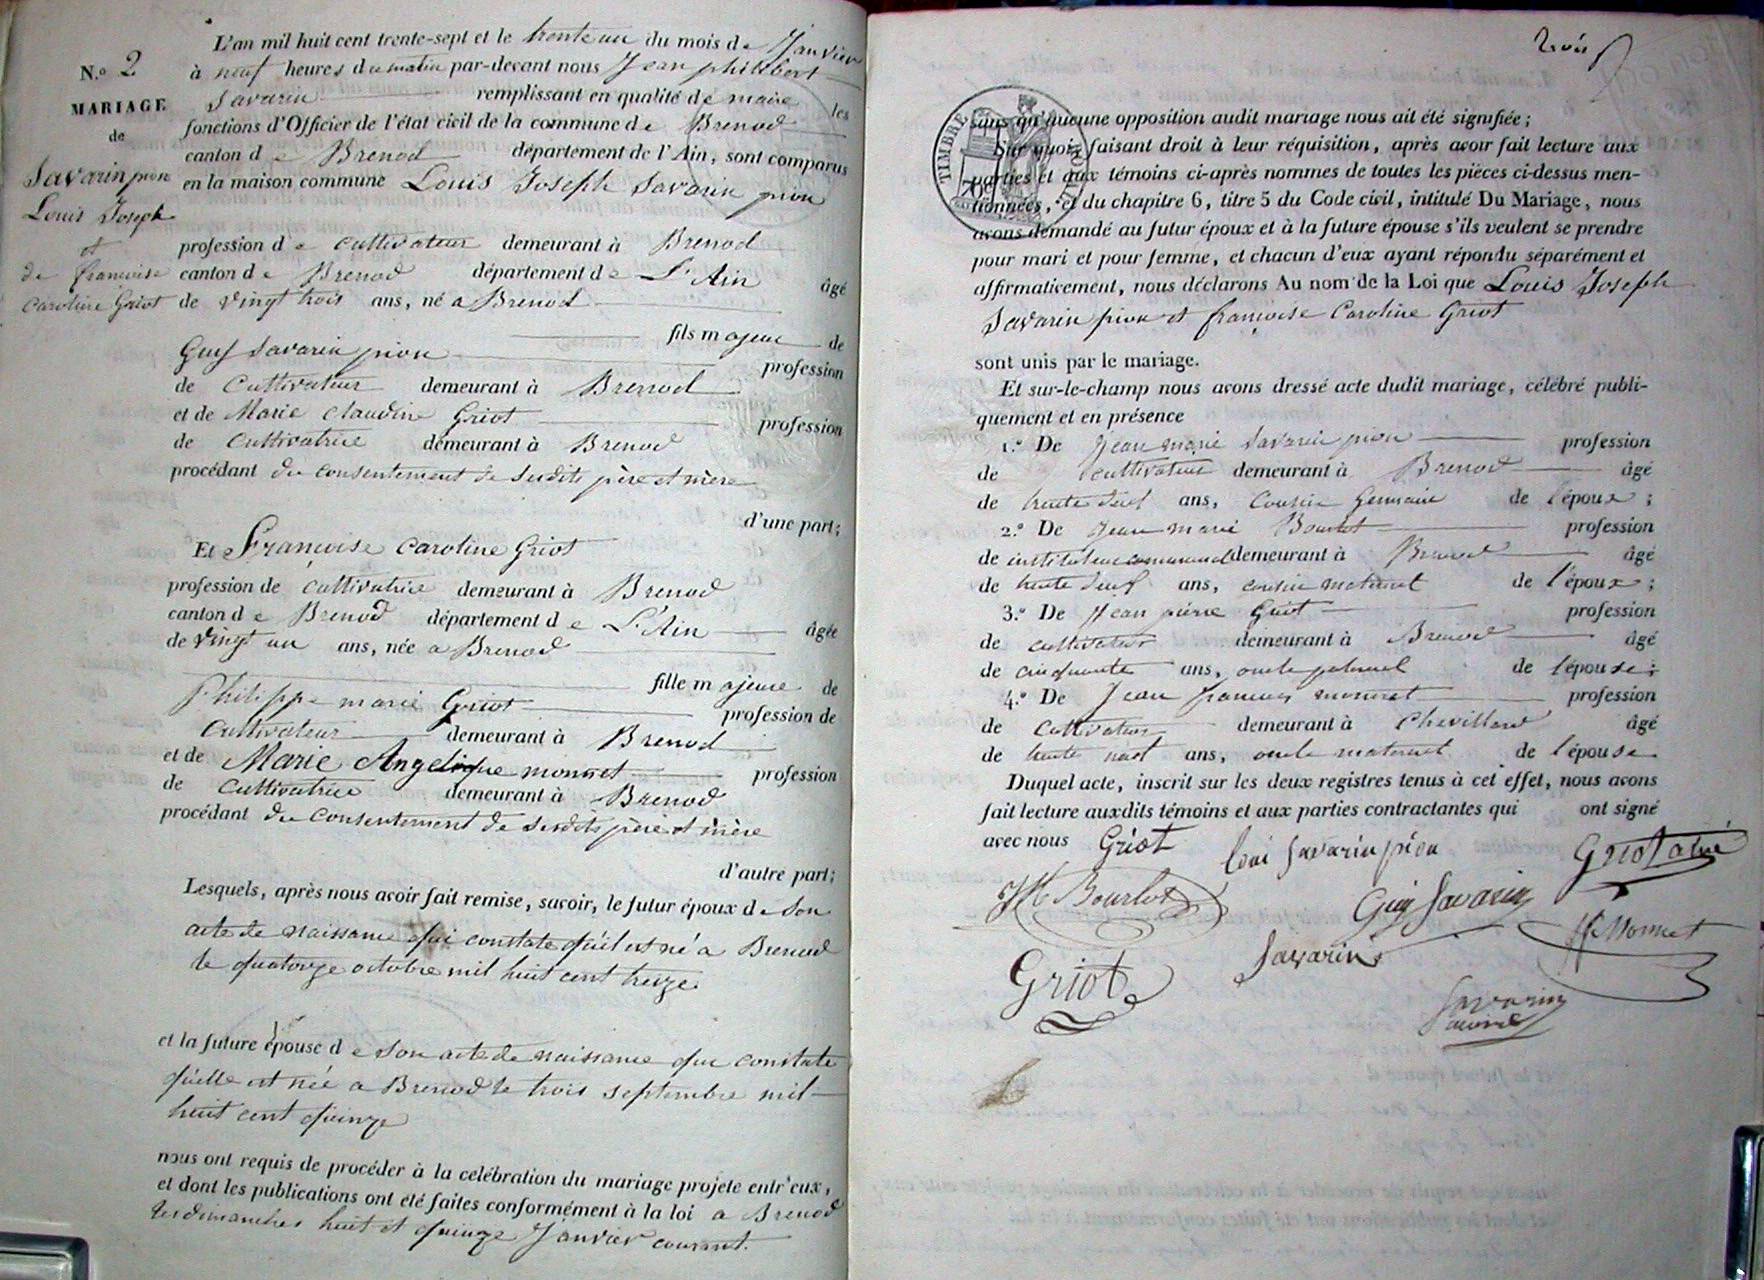 N.º 2
MARIAGE
de
Savarin pion
Louis Joseph
et
de françoise
Caroline Griot
L'an mil huit cent trente-sept et le trente un du mois de Janvier
à neuf heures du matin par-devant nous Jean philibert
Savarin remplissant en qualité de maire les
fonctions d'Officier de l'état civil de la commune de Brenod
canton de Brenod département de l'Ain, sont comparus
en la maison commune Louis Joseph Savarin pion
profession de cultivateur demeurant à Brenod
canton de Brenod département de L'Ain âgé
de vingt trois ans, né a Brenod
fils majeur de
Guy Savarin pion profession
de Cultivateur demeurant à Brenod
et de Marie Claudine Griot profession
de Cultivatrice demeurant à Brenod
procédant du consentement de Sesdits père et mère
d'une part;
Et Françoise Caroline Griot
profession de cultivatrice demeurant à Brenod
canton de Brenod département de L'Ain âgée
de vingt un ans, née a Brenod
fille majeure de
Philippe marie Griot profession de
Cultivateur demeurant à Brenod
et de Marie Angelique monnet profession
de Cultivatrice demeurant à Brenod
procédant du Consentement de Sesdits père et mère
d'autre part;
Lesquels, après nous avoir fait remise, savoir, le futur époux de Son
acte de naissance qui constate qu'il est né a Brenod
le quatorze octobre mil huit cent treize
et la future épouse de Son acte de naissance que constate
qu'elle est née a Brenod le trois septembre mil
huit cent quinze
nous ont requis de procéder à la celébration du mariage projeté entr'eux,
et dont les publications ont été faites conformément à la loi a Brenod
les dimanches huit et quinze Janvier courant.
TIMBRE
sans qu'aucune opposition audit mariage nous ait été signifiée;
Sur quoi, faisant droit à leur réquisition, après avoir fait lecture aux
parties et aux témoins ci-après nommes de toutes les pièces ci-dessus men-
tionnées, et du chapitre 6, titre 5 du Code civil, intitulé Du Mariage, nous
avons demandé au futur époux et à la future épouse s'ils veulent se prendre
pour mari et pour femme, et chacun d'eux ayant répondu séparément et
affirmativement, nous déclarons Au nom de la Loi que Louis Joseph
Savarin pion et françoise Caroline Griot
sont unis par le mariage.
Et sur-le-champ nous avons dressé acte dudit mariage, célébré publi-
quement et en présence
1.º De Jean marie Savarin pion profession
de cultivateur demeurant à Brenod âgé
de trente neuf ans, Cousin Germain de l'époux;
2.º De Jean marie Bourlot profession
de instituteur communal demeurant à Brenod âgé
de trente neuf ans, cousin maternel de l'époux;
3.º De Jean pierre Griot profession
de cultivateur demeurant à Brenod âgé
de cinquante ans, oncle paternel de l'épouse;
4.º De Jean françois monnet profession
de Cultivateur demeurant à Chevillard âgé
de trente huit ans, oncle maternel de l'épouse
Duquel acte, inscrit sur les deux registres tenus à cet effet, nous avons
fait lecture auxdits témoins et aux parties contractantes qui ont signé
avec nous Griot Loui Savarin pion Griot ainé
JM Bourlot Guy Savarin
Griot Savarin Monnet
Savarin
maire